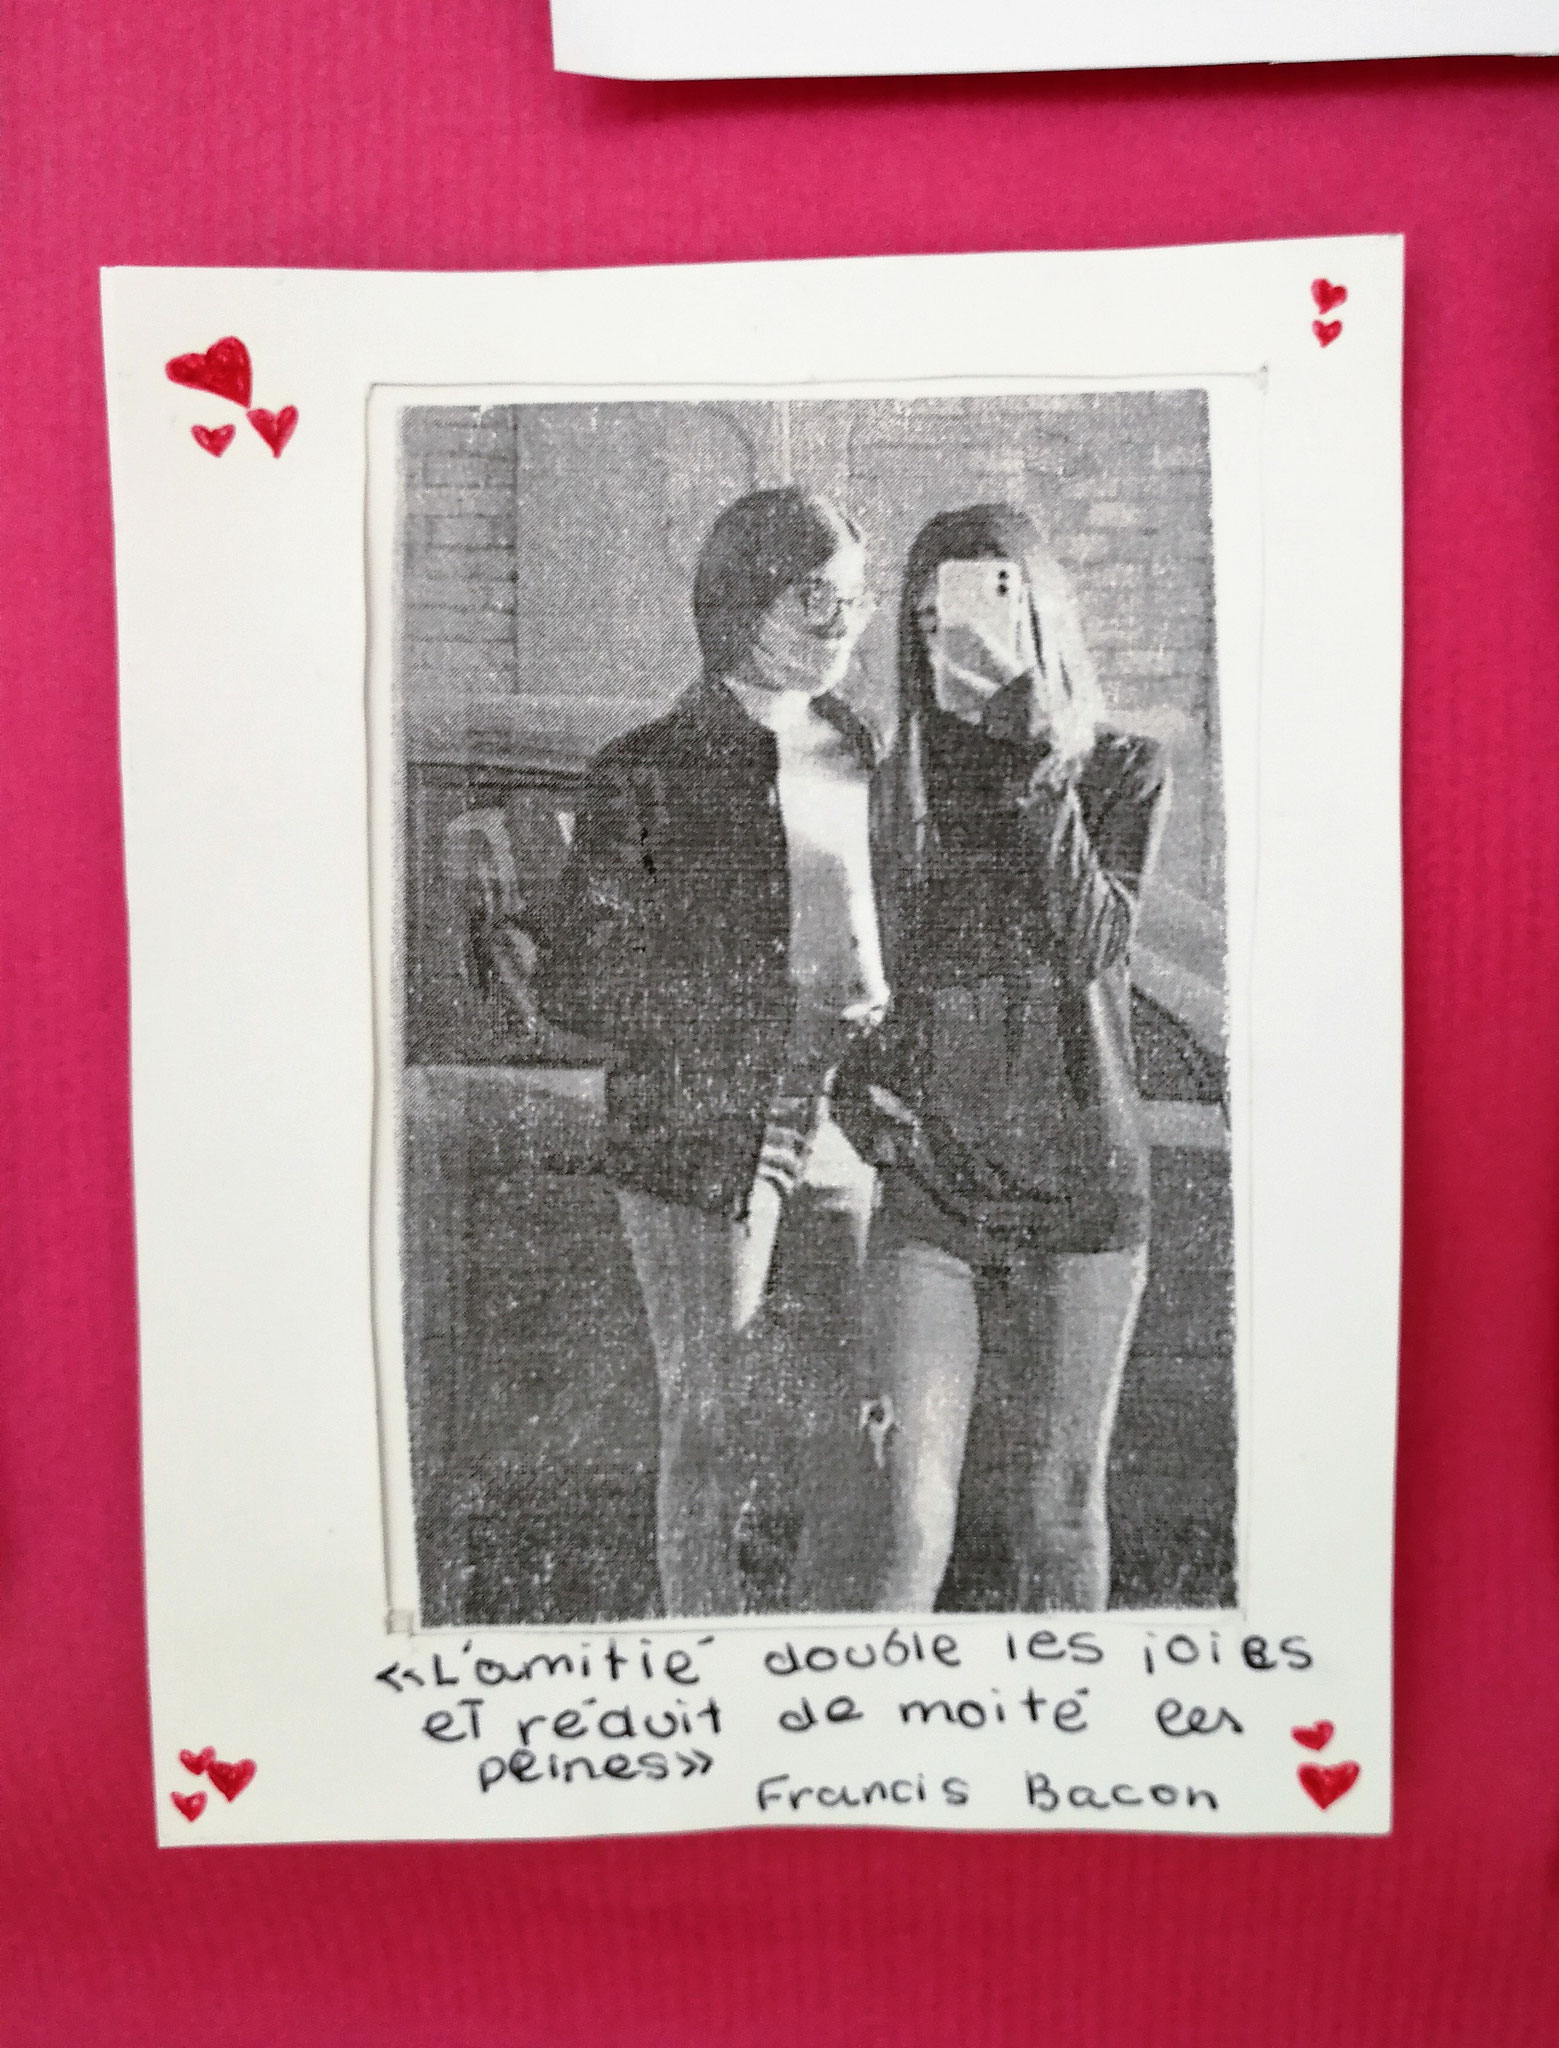 «L'amitié double les joies
et réduit de moité les
peines»
Francis Bacon